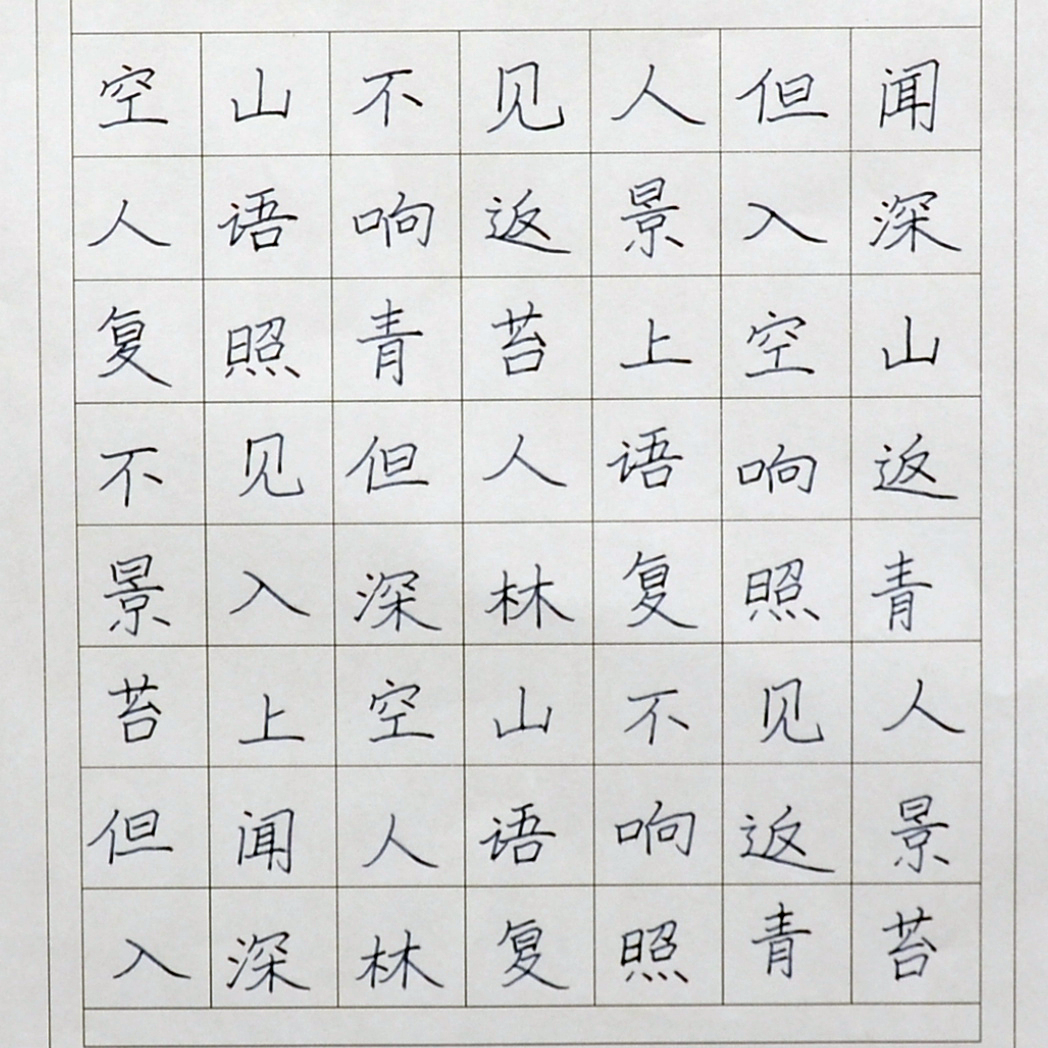 空山不见人但闻
人语响返景入深
复照青苔上空山
不见但人语响返
景入深林复照青
苔上空山不见人
但闻人语响返景
入深林复照青苔